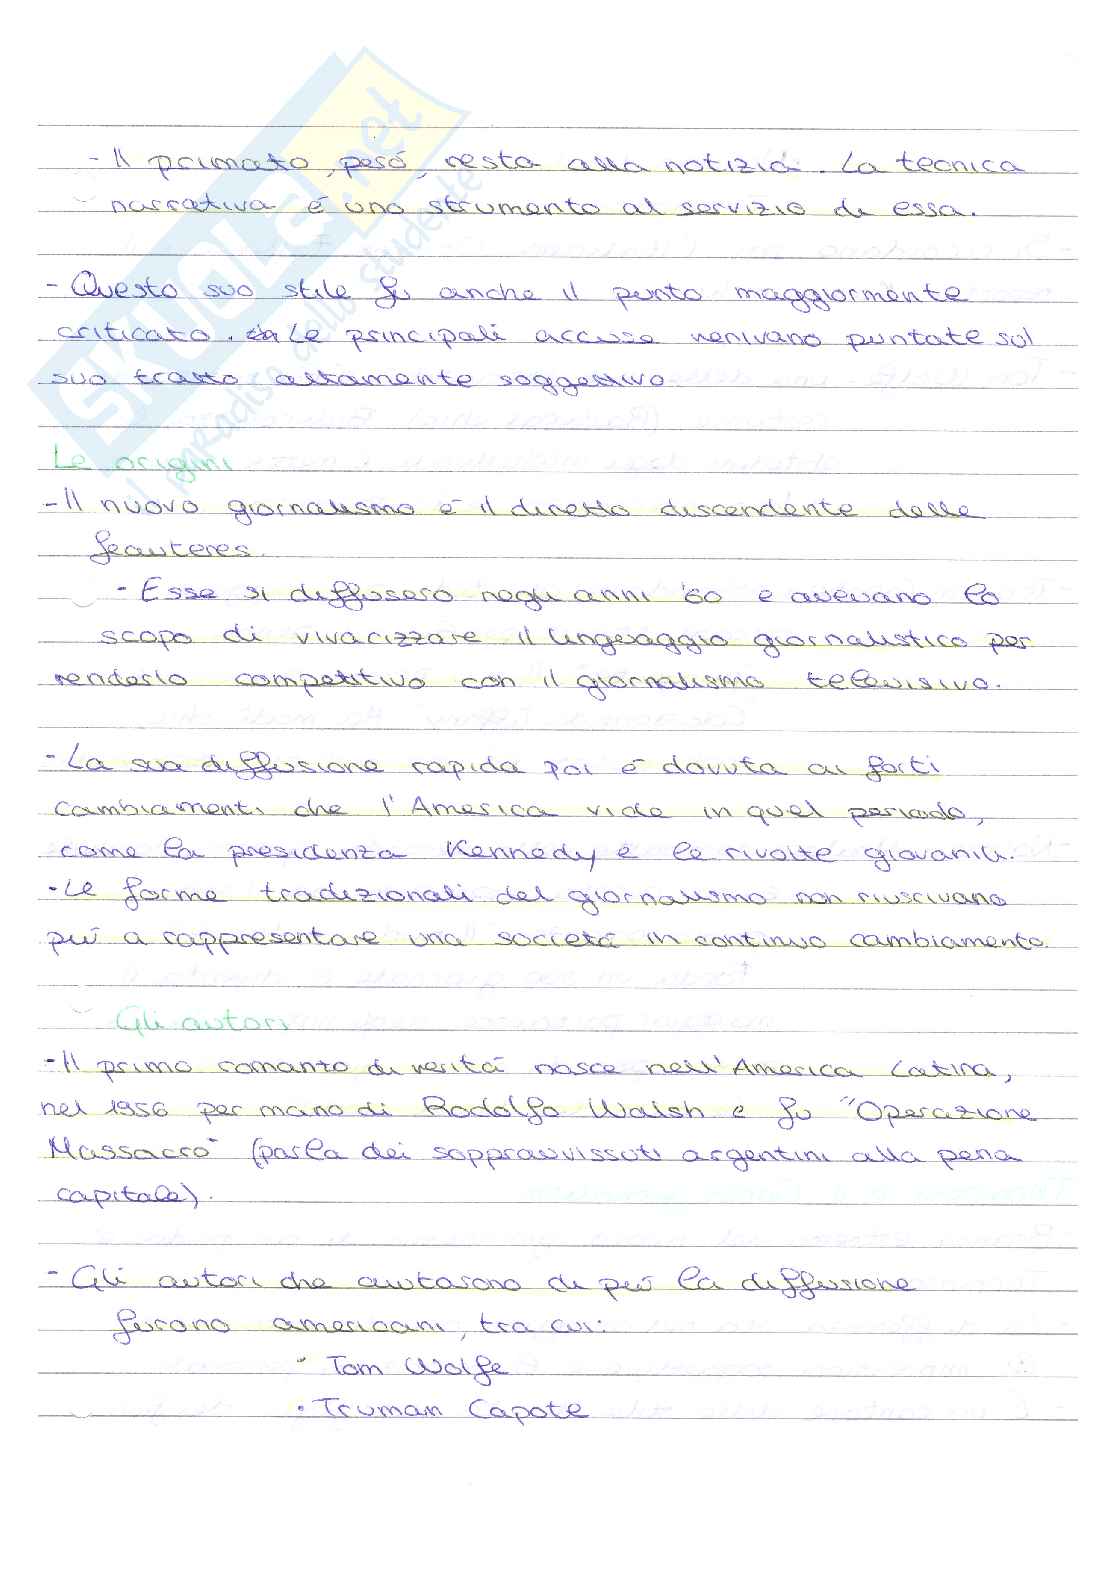 SKUOLA.net
il paradiso dello studente
- Il primato, però, resta alla notizia. La tecnica
narrativa è uno strumento al servizio di essa.
- Questo suo stile fu anche il punto maggiormente
criticato. Le principali accuse venivano puntate sul
suo tratto altamente soggettivo
Le origini
- Il nuovo giornalismo è il diretto discendente delle
feauteres.
- Esse si diffusero negli anni '60 e avevano lo
scopo di vivacizzare il linguaggio giornalistico per
renderlo competitivo con il giornalismo televisivo.
- La sua diffusione rapida poi è dovuta ai forti
cambiamenti che l'America vide in quel periodo,
come la presidenza Kennedy e le rivolte giovanili.
- Le forme tradizionali del giornalismo non riuscivano
più a rappresentare una società in continuo cambiamento.
Gli autori
- Il primo romanzo di verità nasce nell'America Latina,
nel 1956 per mano di Rodolfo Walsh e fu "Operazione
Massacro" (parla dei sopprawissuti argentini alla pena
capitale).
- Gli autori che aiutarono di più la diffusione
furono americani, tra cui:
· Tom Wolfe
· Truman Capote